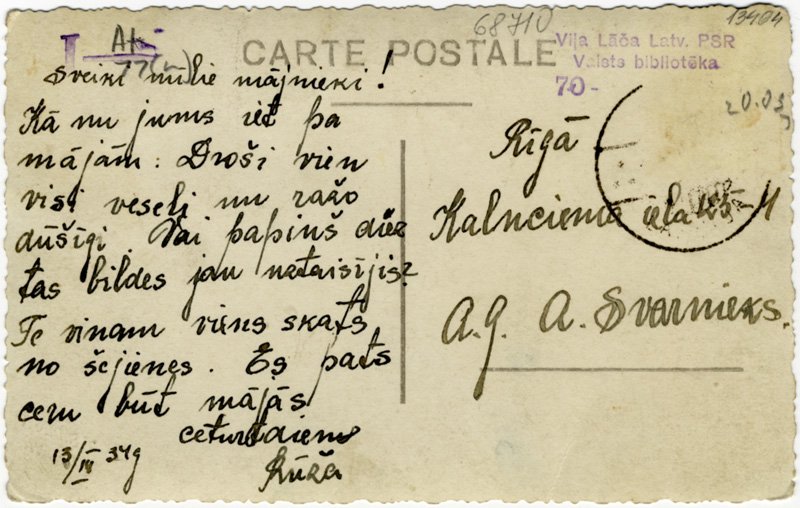 68710
13404
CARTE POSTALE
Viļa Lāča Latv. PSR
Valsts bibliotēka
70-
20.03
Sveiki mīlie mājnieki!
Kā nu jums iet pa
mājām. Droši vien
visi veseļi nu ražo
dūšīgi. Vai papiņš diez
tas bildes jau uztaisījis?
Te viņam viens skats
no šejienes. Es pats
ceru būt mājās
ceturtdiena
13/IV 34g
Rīgā
Kalnciema iela 25-4
A.g. A. Svarnieks.